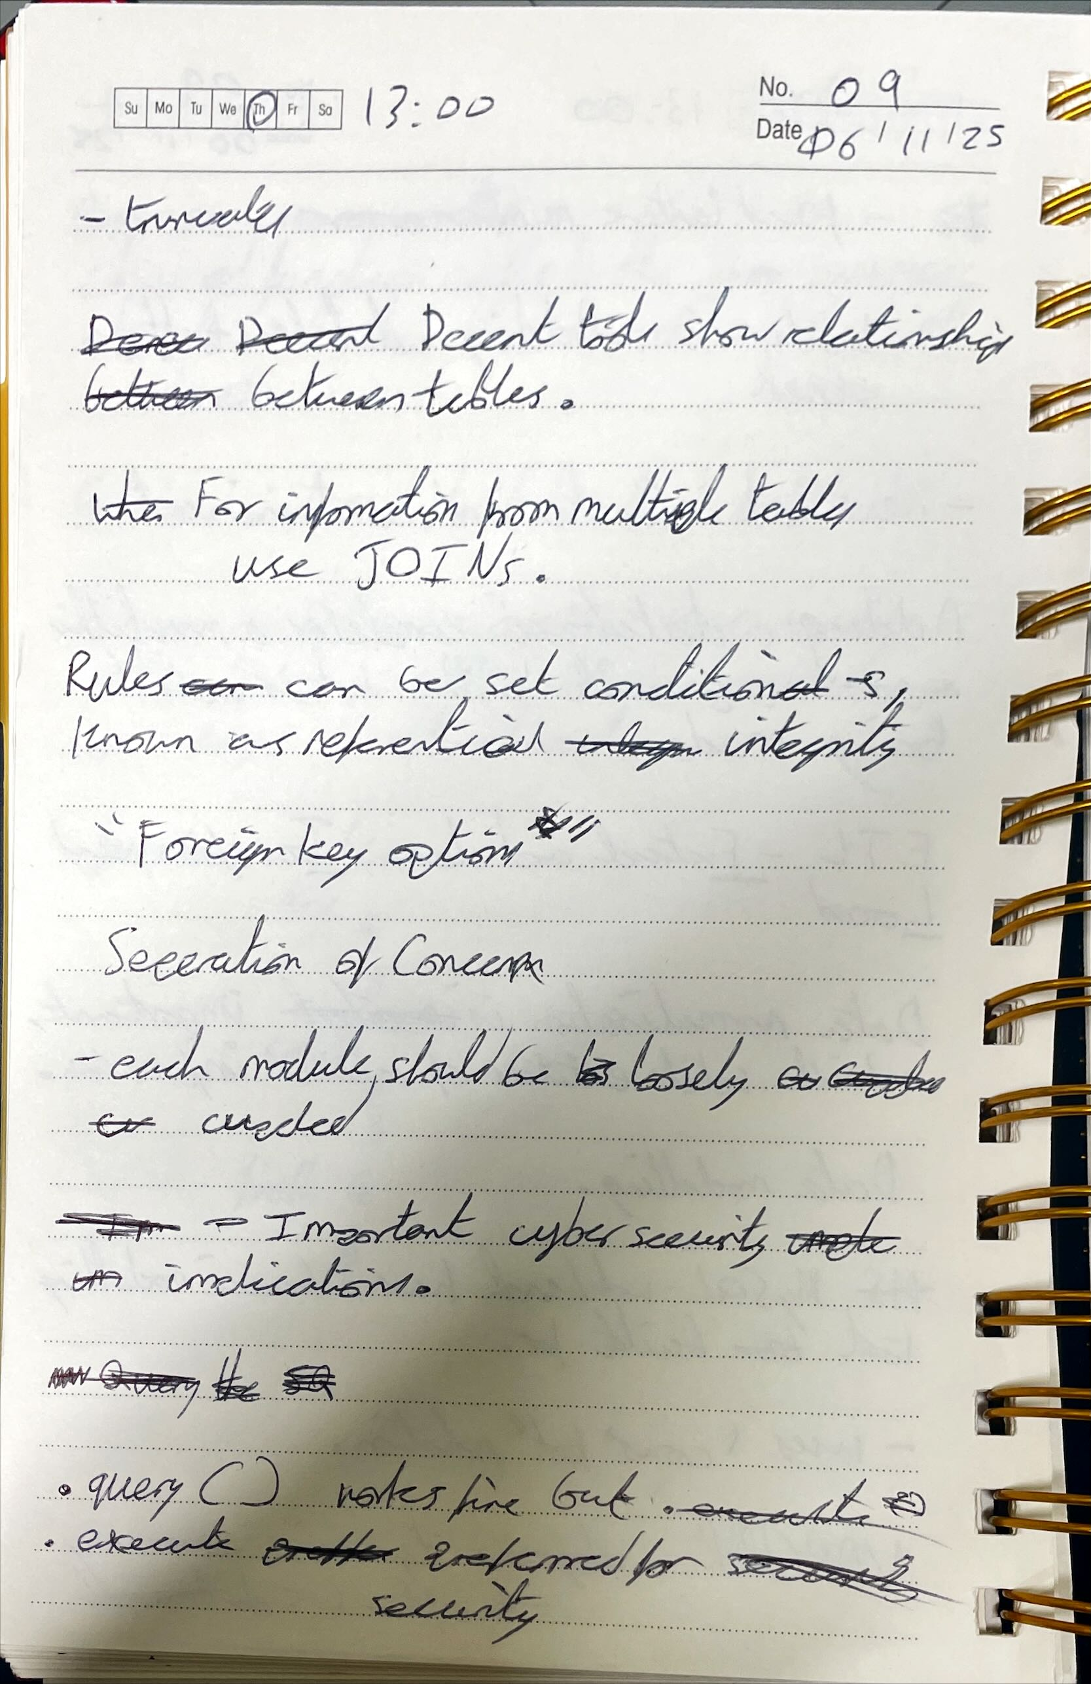 Su Mo Tu We Th Fr Sa 13:00
No. 09
Date 06/11/25
- truncates
Decent Decent tools show relationships
between between tables.
when For information from multiple tables
use JOINs.
Rules can can be set conditional s,
known as referential integrity
"Foreign key options"
Seperation of Concern
- each module, should be loosely
coupled
Im - Important cyber security
implications.
Query the SQ
• query() works fine but . execute
• execute preferred for security
security